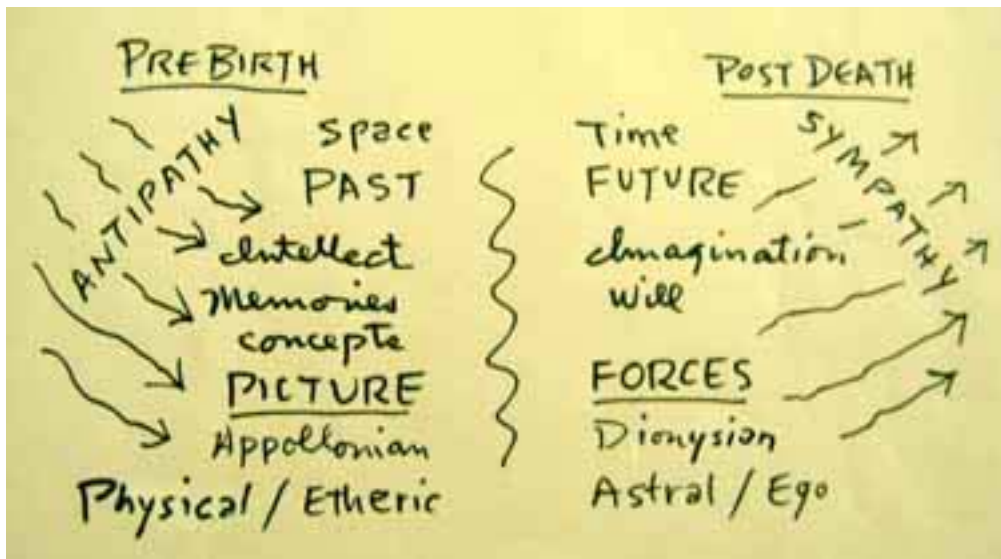 PRE BIRTH
ANTIPATHY
Space
PAST
Intellect
Memories
concepte
PICTURE
Appollonian
Physical / Etheric
POST DEATH
SYMPATHY
Time
FUTURE
Imagination
Will
FORCES
Dionysian
Astral / Ego